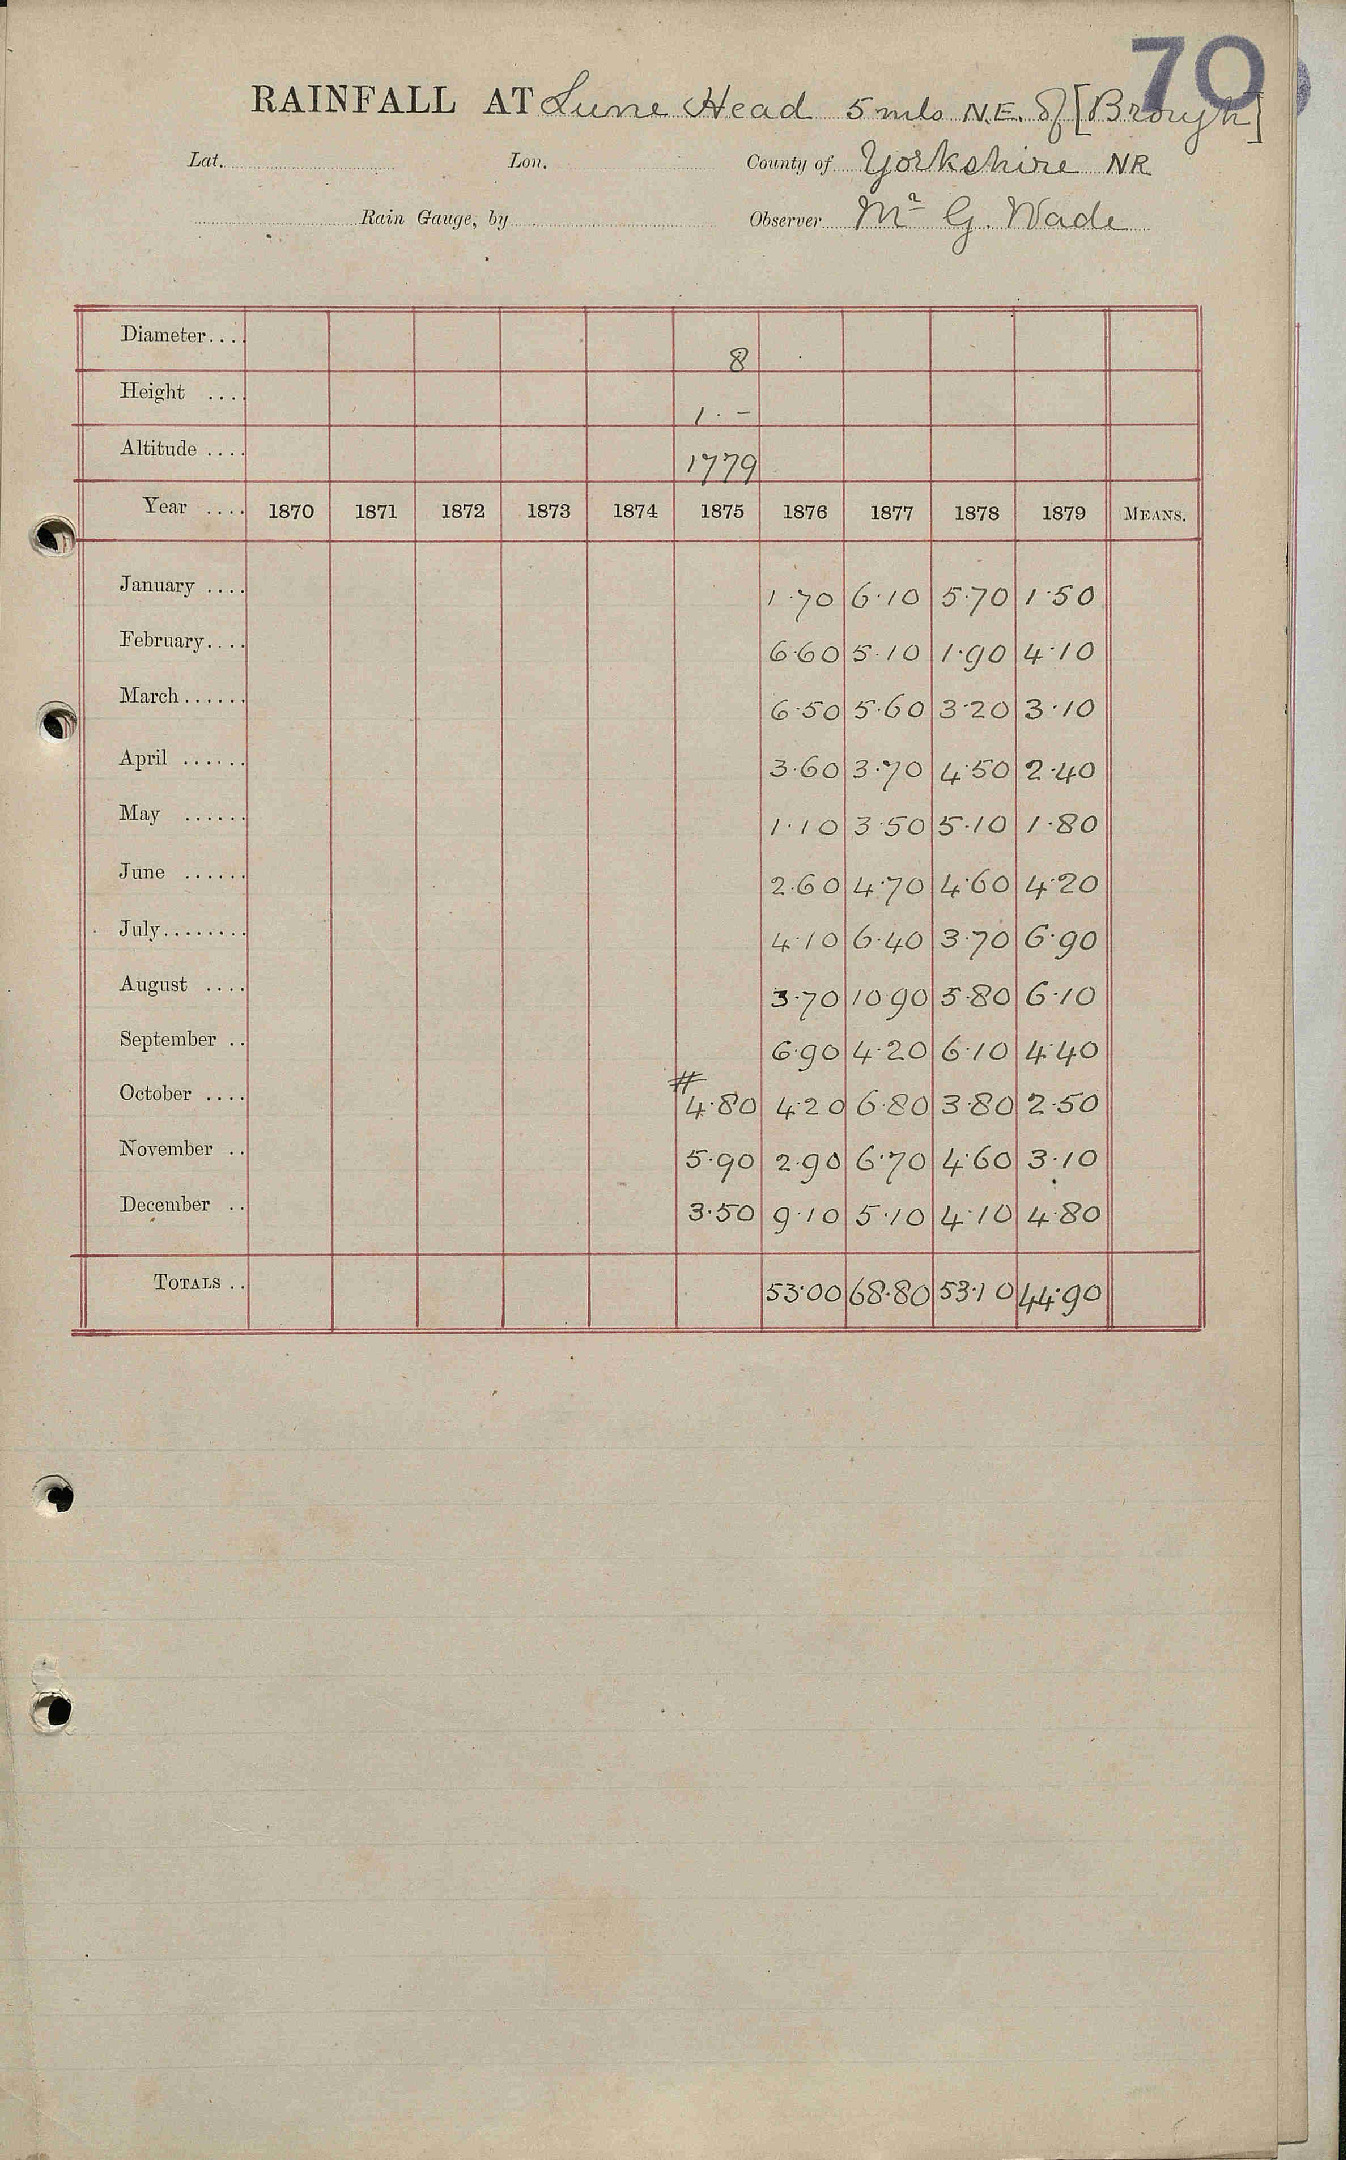 70
RAINFALL AT Lune Head 5 mls N.E. of [Brough]
Lat. Lon. County of Yorkshire NR
Rain Gauge, by Observer Mr G. Wade
Diameter.... 8
Height .... 1 · -
Altitude .... 1779
Year .... 1870 1871 1872 1873 1874 1875 1876 1877 1878 1879 MEANS.
January .... 1·70 6·10 5·70 1·50
February.... 6·60 5·10 1·90 4·10
March...... 6·50 5·60 3·20 3·10
April ...... 3·60 3·70 4·50 2·40
May ...... 1·10 3·50 5·10 1·80
June ...... 2·60 4·70 4·60 4·20
July........ 4·10 6·40 3·70 6·90
August .... 3·70 10·90 5·80 6·10
September .. 6·90 4·20 6·10 4·40
#
October .... 4·80 4·20 6·80 3·80 2·50
November .. 5·90 2·90 6·70 4·60 3·10
December .. 3·50 9·10 5·10 4·10 4·80
TOTALS .. 53·00 68·80 53·10 44·90